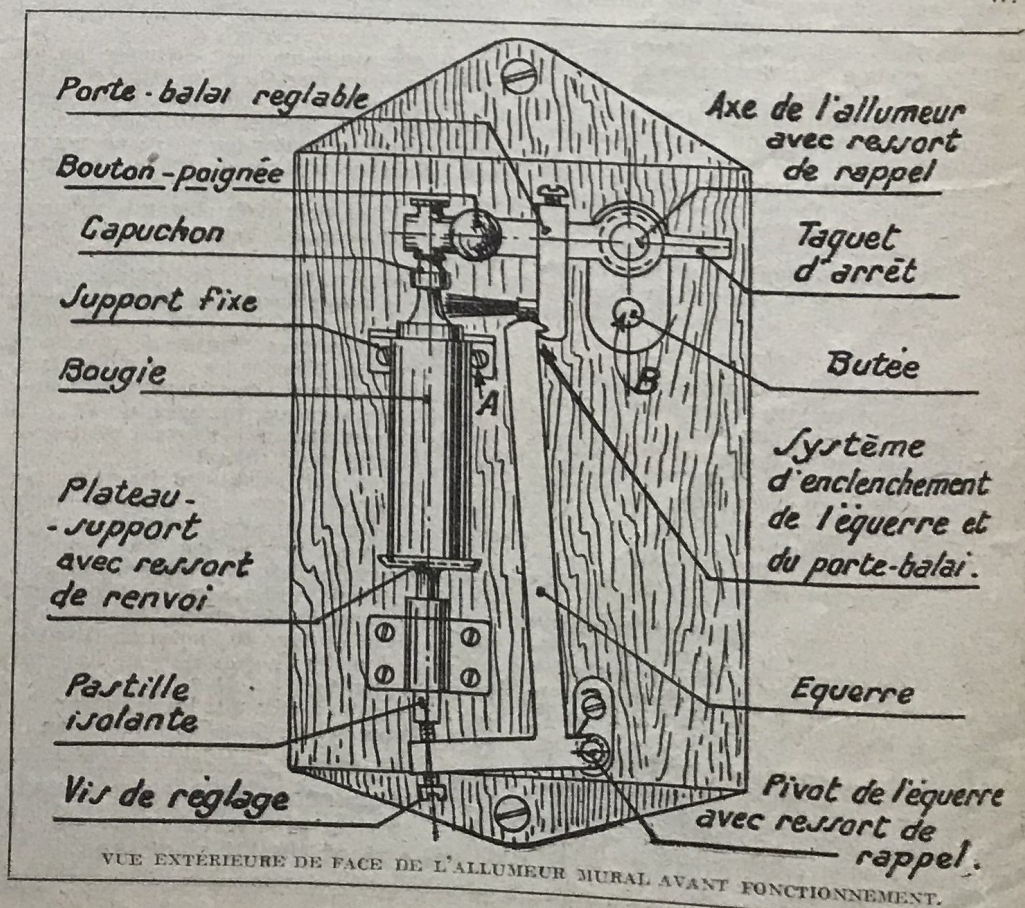 Porte-balai reglable
Bouton-poignée
Capuchon
Support fixe
Bougie
Plateau-
-support
avec ressort
de renvoi
Pastille
isolante
Vis de réglage
Axe de l'allumeur
avec ressort
de rappel
Taquet
d'arrêt
Butée
A
B
Système
d'enclenchement
de l'équerre et
du porte-balai.
Equerre
Pivot de l'équerre
avec ressort de
rappel.
VUE EXTÉRIEURE DE FACE DE L'ALLUMEUR MURAL AVANT FONCTIONNEMENT.